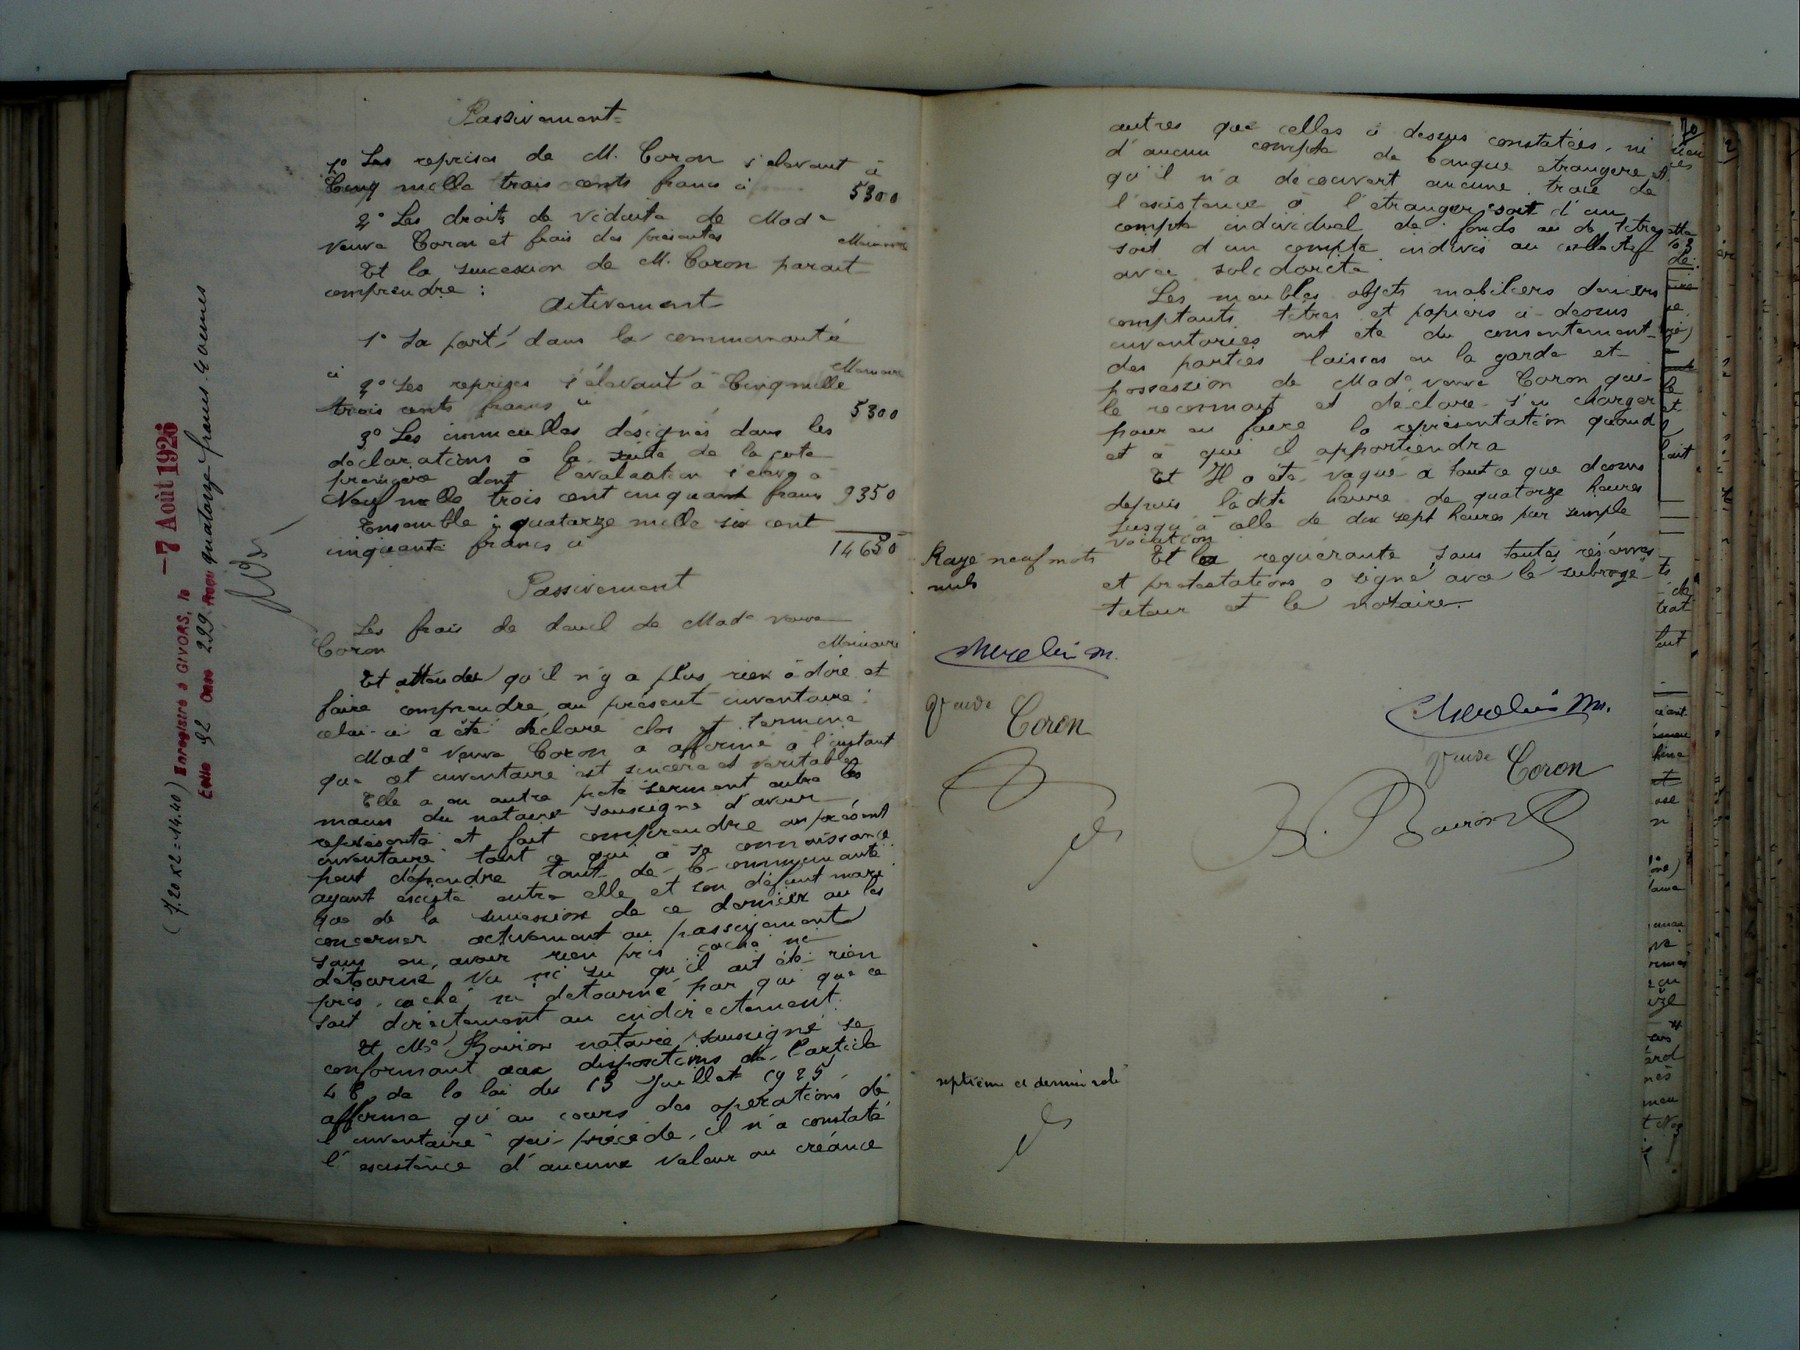 Passivement
1° Les reprises de M. Coron s'élevant à
Cinq mille trois cents francs ci 5300
2° Les droits de viduité de Made
veuve Coron et frais des présentes Mémoire
Et la succession de M. Coron parait
comprendre :
Activement
1° Sa part dans la communauté
ci Mémoire
2° Les reprises s'élevant à Cinq mille
trois cents francs ci 5300
3° Les immeubles désignés dans les
déclarations à la suite de la cote
première dont l'évaluation s'élève à
Neuf mille trois cent cinquante francs 9350
Ensemble : quatorze mille six cent
cinquante francs ci 14650
Passivement
Les frais de deuil de Made veuve
Coron Mémoire
Et attendu qu'il n'y a plus rien à dire et
faire comprendre au présent inventaire :
celui-ci a été déclaré clos et terminé
Made Veuve Coron a affirmé à l'instant
que cet inventaire est sincère et véritable
Elle a en outre prêté serment entre les
mains du notaire soussigné d'avoir
représenté et fait comprendre au présent
inventaire tout ce qui à sa connaissance
peut dépendre tant de la communauté
ayant existé entre elle et son défunt mari
que de la succession de ce dernier ou les
concerner activement ou passivement
sans en avoir rien pris caché ni
détourné, vu ni su qu'il ait été rien
pris, caché ni détourné par qui que ce
soit directement ou indirectement.
Et Me Boiron notaire soussigné se
conformant aux dispositions de l'article
48 de la loi du 13 Juillet 1925,
affirme qu'au cours des opérations de
l'inventaire qui précède, il n'a constaté
l'existence d'aucune valeur ou créance
Enregistré à GIVORS, le -7 Août 1926
Folio 92 Case 229 Reçu quatorze francs 40 cmes
(7.20 x 2 = 14.40)
autres que celles ci dessus constatées, ni
d'aucun compte de banque étrangère et
qu'il n'a découvert aucune trace de
l'existence à l'étranger soit d'un
compte individuel de fonds ou de titres
soit d'un compte indivis ou collectif
avec solidarité
Les meubles objets mobiliers deniers
comptants titres et papiers ci-dessus
inventoriés ont été du consentement
des parties laissés en la garde et
possession de Made veuve Coron qui
le reconnait et déclare s'en charger
pour en faire la représentation quand
et à qui il appartiendra
Et Il a été vaqué à tout ce que dessus
depuis ladite heure de quatorze heures
jusqu'à celle de dix sept heures par simple
vacation
Et la requérante, sous toutes réserves
et protestations a signé avec le subrogé
tuteur et le notaire.
Rayé neuf mots
nuls
Merolin M.
Veuve Coron
Merolin M.
Veuve Coron
Boiron
septième et dernier rôle